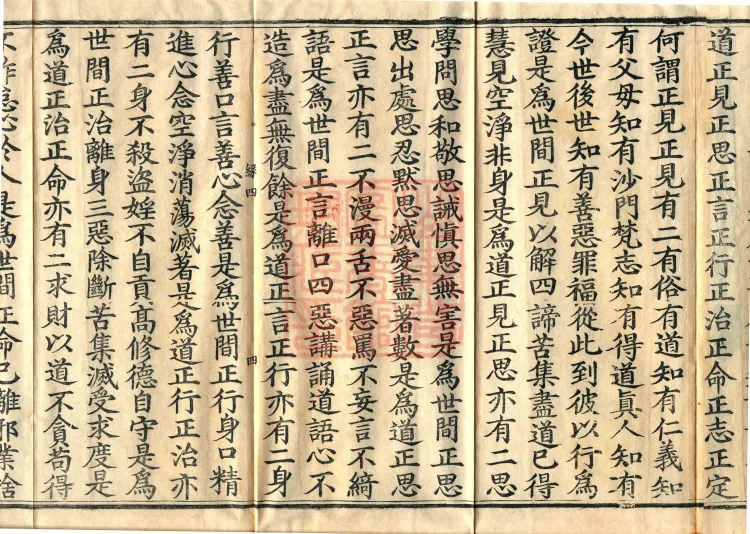 道正見正思正言正行正治正命正志正定
何謂正見正見有二有俗有道知有仁義知
有父母知有沙門梵志知有得道真人知有
今世後世知有善惡罪福從此到彼以行為
證是為世間正見以解四諦苦集盡道已得
慧見空淨非身是為道正見正思亦有二思
學問思和敬思誡慎思無害是為世間正思
思出處思忍默思滅愛盡著數是為道正思
正言亦有二不漫兩舌不惡罵不妄言不綺
語是為世間正言離口四惡講誦道語心不
造為盡無復餘是為道正言正行亦有二身
緣四 四
行善口言善心念善是為世間正行身口精
進心念空淨消蕩滅著是為道正行正治亦
有二身不殺盜婬不自貢高修德自守是為
世間正治離身三惡除斷苦集滅受求度是
為道正治正命亦有二求財以道不貪苟得
不詐惡心於人是為世間正命已離邪業捨